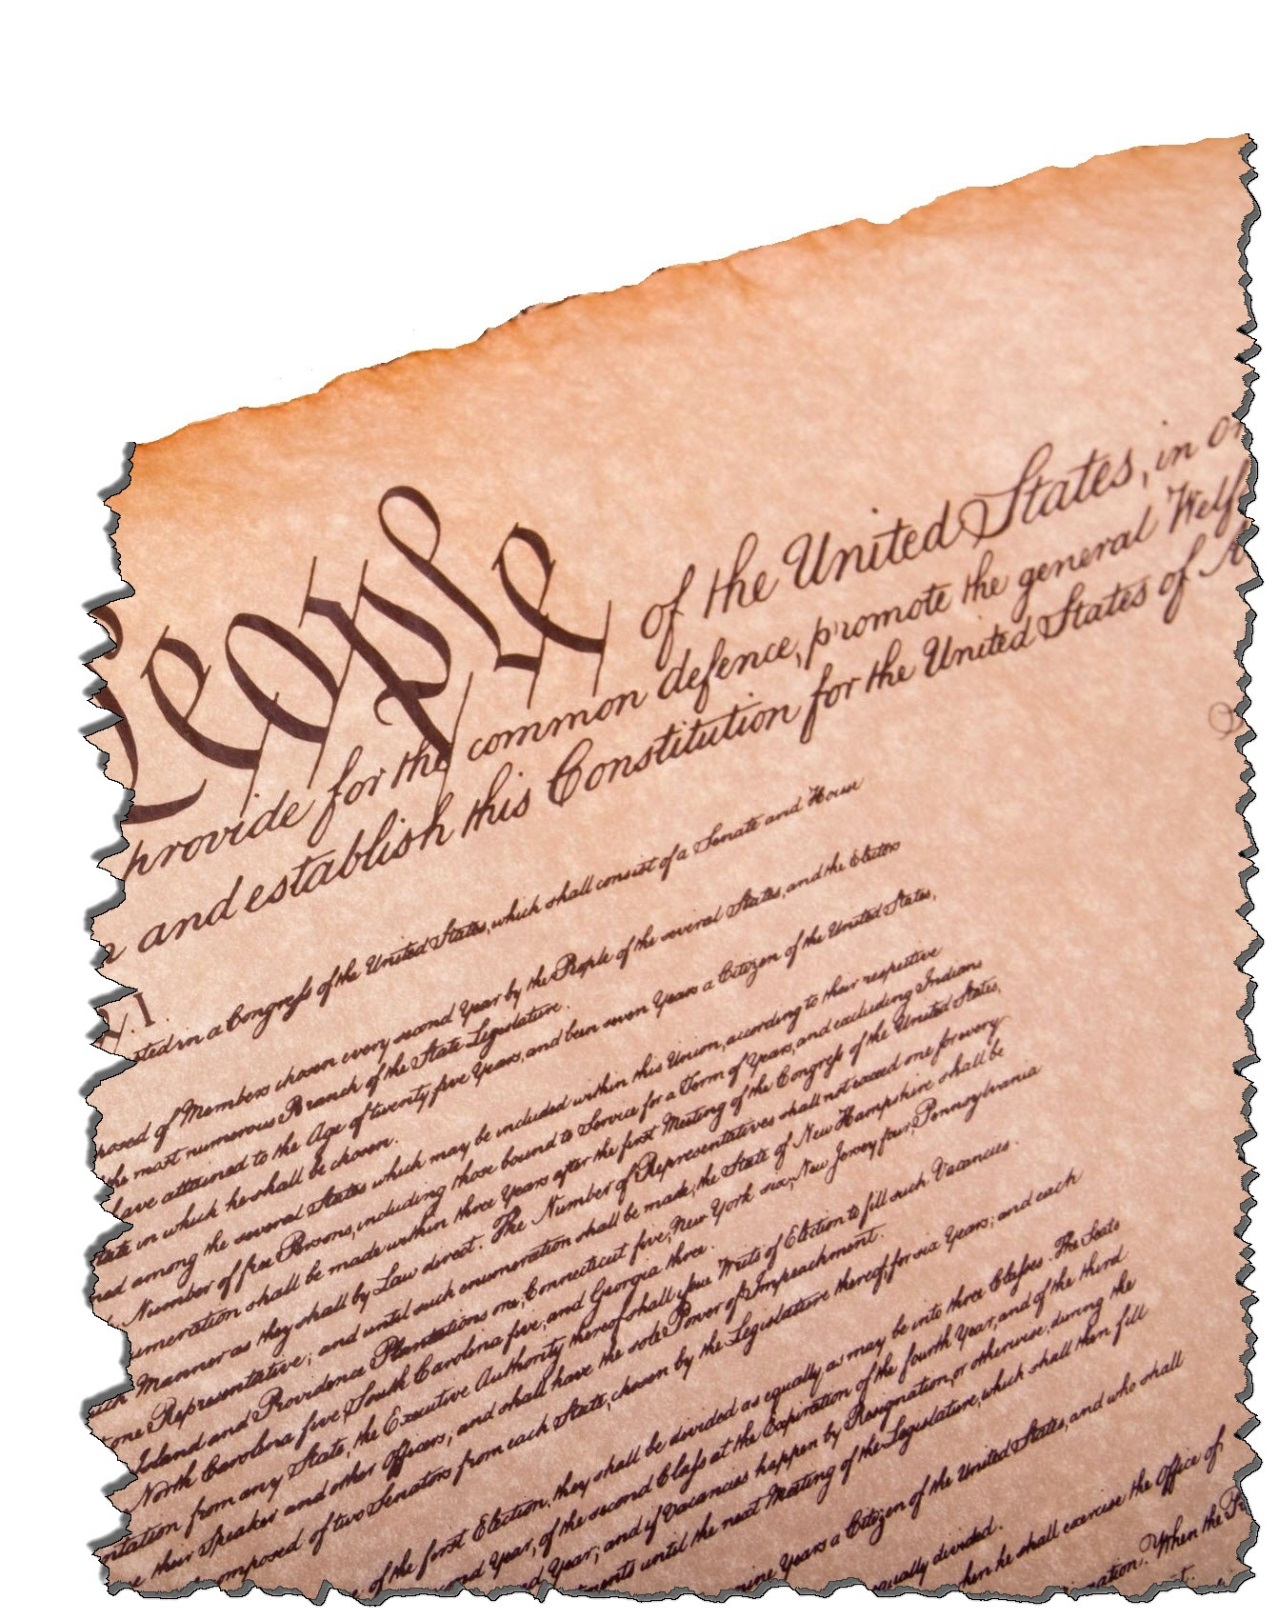 People of the United States, in or
provide for the common defence, promote the general Welf
and establish this Constitution for the United States of A
I.
sted in a Congress of the United States, which shall consist of a Senate and House
posed of Members chosen every second Year by the People of the several States, and the Electors
the most numerous Branch of the State Legislature.
have attained to the Age of twenty five Years, and been seven Years a Citizen of the United States,
State in which he shall be chosen.
ned among the several States which may be included within this Union, according to their respective
Number of free Persons, including those bound to Service for a Term of Years, and excluding Indians
umeration shall be made within three Years after the first Meeting of the Congress of the United States,
such Manner as they shall by Law direct. The Number of Representatives shall not exceed one for every
one Representative; and until such enumeration shall be made, the State of New Hampshire shall be
Island and Providence Plantations one, Connecticut five, New York six, New Jersey four, Pennsylvania
North Carolina five, South Carolina five, and Georgia three.
ntation from any State, the Executive Authority thereof shall issue Writs of Election to fill such Vacancies.
their Speaker and other Officers; and shall have the sole Power of Impeachment.
omposed of two Senators from each State, chosen by the Legislature thereof, for six Years; and each
of the first Election, they shall be divided as equally as may be into three Classes. The Seats
cond Year, of the second Class at the Expiration of the fourth Year, and of the third
nd Year; and if Vacancies happen by Resignation, or otherwise, during the
tments until the next Meeting of the Legislature, which shall then fill
nine Years a Citizen of the United States, and who shall
equally divided.
hen he shall exercise the Office of
mation. When the Pr